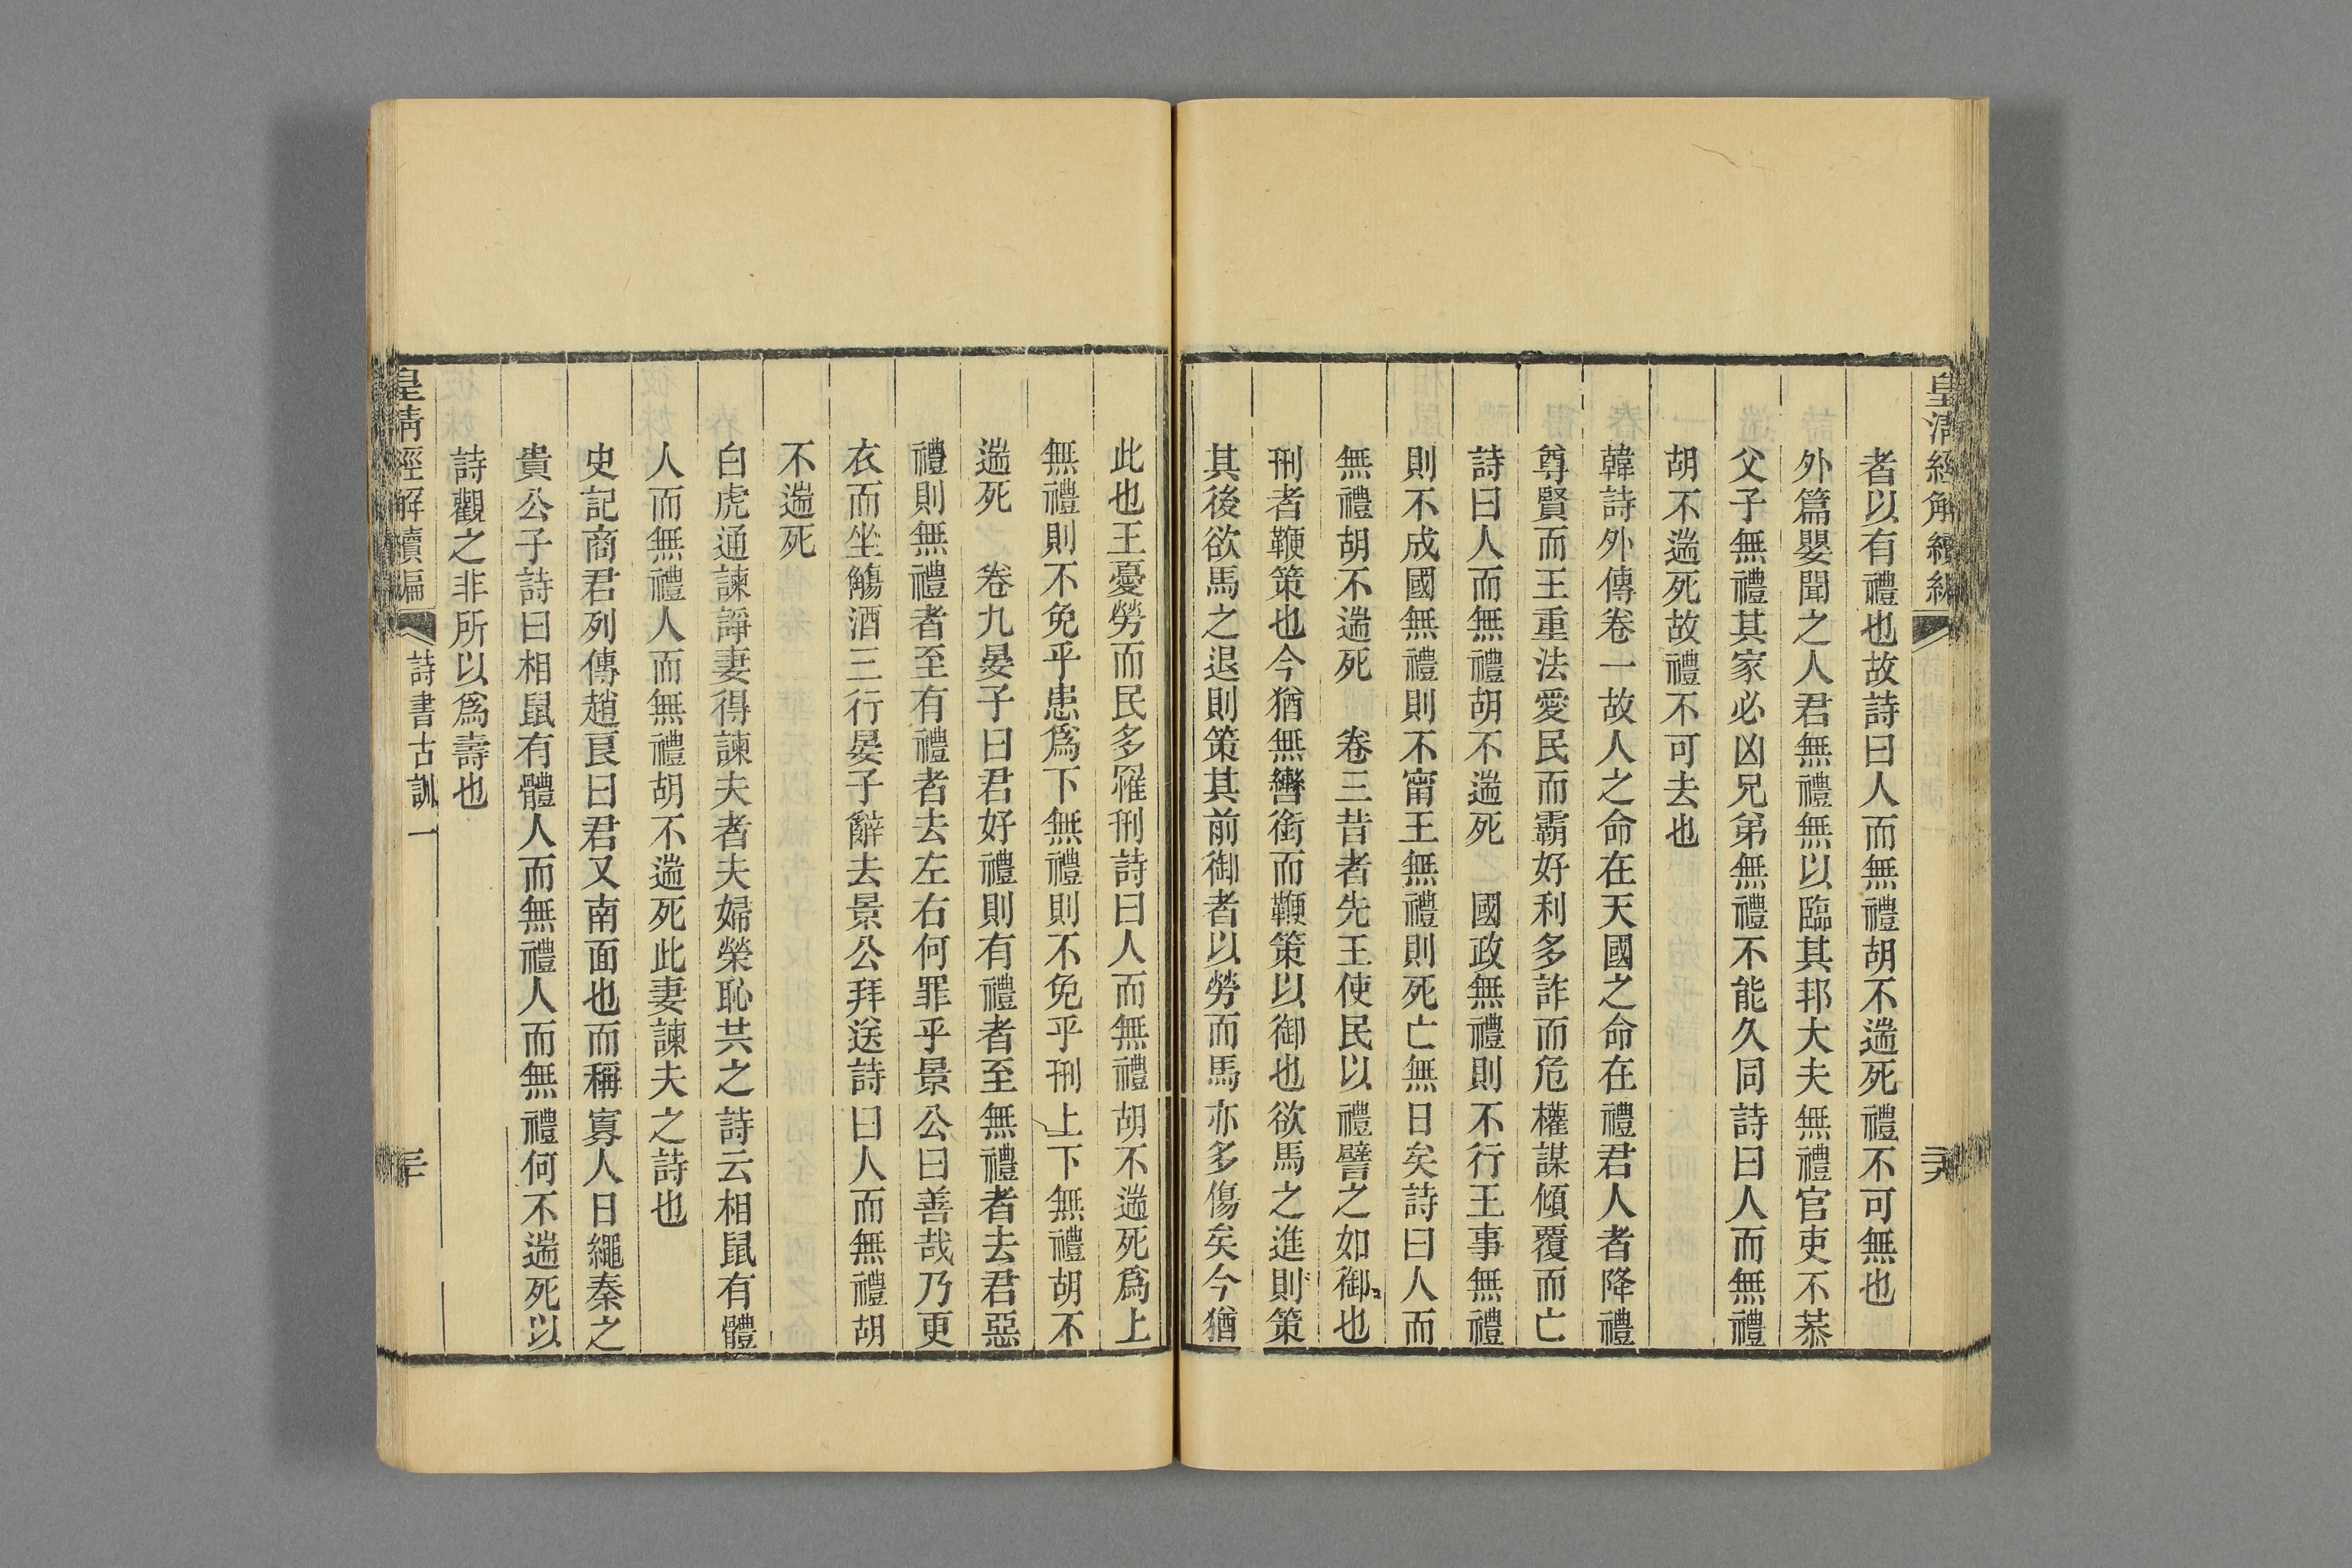 皇清經解續編
者以有禮也故詩曰人而無禮胡不遄死禮不可無也
外篇嬰聞之人君無禮無以臨其邦大夫無禮官吏不恭
父子無禮其家必凶兄弟無禮不能久同詩曰人而無禮
胡不遄死故禮不可去也
韓詩外傳卷一故人之命在天國之命在禮君人者降禮
尊賢而王重法愛民而霸好利多詐而危權謀傾覆而亡
詩曰人而無禮胡不遄死　國政無禮則不行王事無禮
則不成國無禮則不甯王無禮則死亡無日矣詩曰人而
無禮胡不遄死　卷三昔者先王使民以禮譬之如御也
刑者鞭策也今猶無轡銜而鞭策以御也欲馬之進則策
其後欲馬之退則策其前御者以勞而馬亦多傷矣今猶
此也王憂勞而民多罹刑詩曰人而無禮胡不遄死爲上
無禮則不免乎患爲下無禮則不免乎刑上下無禮胡不
遄死　卷九晏子曰君好禮則有禮者至無禮者去君惡
禮則無禮者至有禮者去左右何罪乎景公曰善哉乃更
衣而坐觴酒三行晏子辭去景公拜送詩曰人而無禮胡
不遄死
白虎通諫諍妻得諫夫者夫婦榮恥共之詩云相鼠有體
人而無禮人而無禮胡不遄死此妻諫夫之詩也
史記商君列傳趙良曰君又南面也而稱寡人日繩秦之
貴公子詩曰相鼠有體人而無禮人而無禮何不遄死以
詩觀之非所以爲壽也
皇清經解續編　詩書古訓一　三十